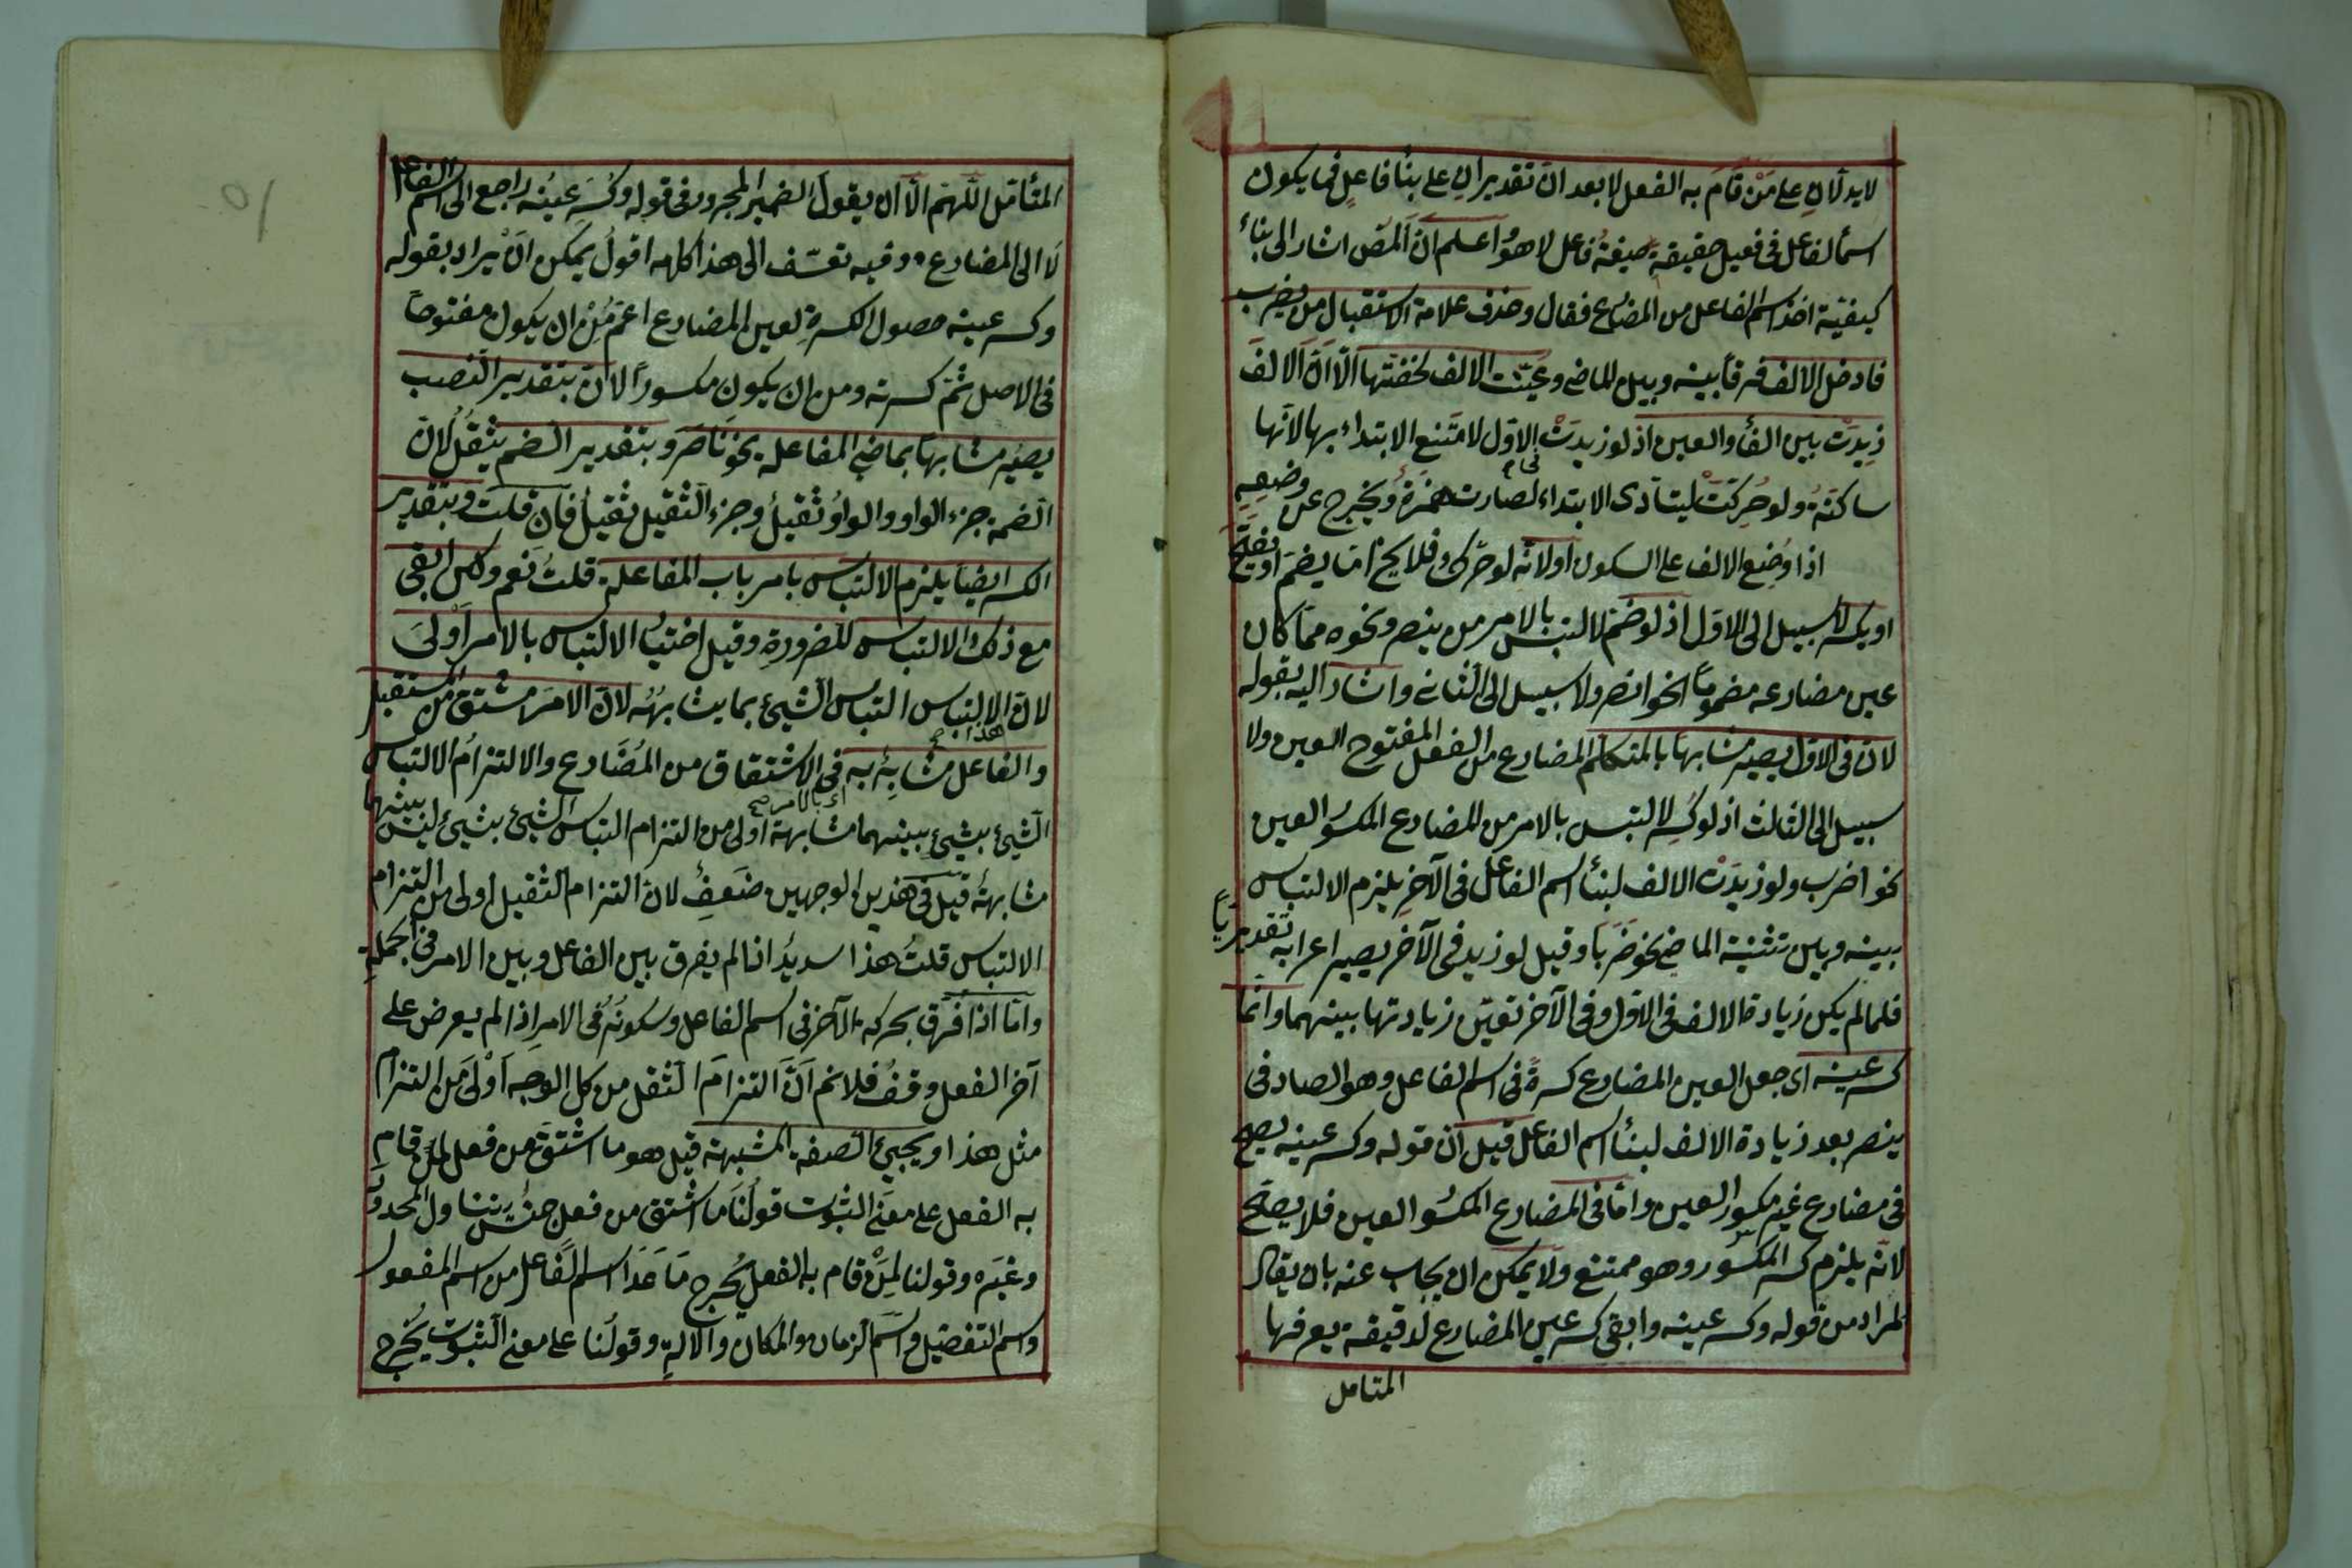 لا يدلان على مَنْ قام به الفعل لا بعد ان تقديران على بناء فاعل فى يكون
اسم الفاعل فى فعيل حقيقة صيغة فاعل لا هو اعلم انّ المصّ اشار الى بناء
كيفيّة اخذ اسم الفاعل من المضارع فقال وحذف علامة الاستقبال من يضرب
فادخل الالف فرقا بينه وبين الماضى وعيّنت الالف لخفتها الّا انّ الالف
زيدَتْ بين الفاء والعين اذ لو زيدَتْ فى الاوّل لامتنع الابتداء بها لانّها
ساكنة ولو حُرِكَتْ ليتأدى الابتداء لصارت همزةً ويخرج عن وضعِهِ
اذا وُضِع الالف على السكون اولا لانّه لو حرّك فلا يخ امّا يضمّ او يفتح
او يكسر لا سبيل الى الاوّل اذ لو ضمّ لالتبس بالامر من ينصر ونحوه ممّا كان
عين مضارعه مضموماً نحو انصر ولا سبيل الى الثانى واشار اليه بقوله
لانّ فى الاوّل يصير مشابها بالمتكلم المضارع من الفعل المفتوح العين ولا
سبيل الى الثالث اذ لو كُسِر لالتبس بالامر من المضارع المكسور العين
نحو اضرب ولو زيدَتْ الالف لبناء اسم الفاعل فى الآخر يلزم الالتباس
بينه وبين تثنية الماضى نحو ضَرَبَا وقيل لو زيد فى الآخر يصير اعرابه تقديريّاً
فلمّا لم يكن زيادة الالف فى الاوّل وفى الآخر تعيّن زيادتها بينهما وانّما
كسر عينه اى جعل العين المضارع كسرةً فى اسم الفاعل وهو الصاد فى
ينصر بعد زيادة الالف لبناء اسم الفاعل قيل انّ قوله وكسر عينه يصح
فى مضارع غير مكسور العين وامّا فى المضارع المكسور العين فلا يصحّ
لانّه يلزم كسر المكسور وهو ممتنع ولا يمكن ان يجاب عنه بان يقال
لمراد من قوله وكسر عينه وابقى كسر عين المضارع لدقيقة يعرفها
المتامل
المتأمّل اللّهمّ الّا ان يقول الضمير المجرور فى قوله وكُسِرَ عينُه راجع الى اسم الفاعل
لا الى المضارع وفيه تعسّف الى هذا كلامه اقول يمكن انْ يراد بقوله
وكسر عينه حصول الكسرةِ لعين المضارع اعمّ مِنْ ان يكون مفتوحاً
فى الاصل ثمّ كسرته ومن ان يكون مكسوراً لانّ بتقدير النصب
يصير مشابهاً بماضى المفاعلة نحو ناصَرَ وبتقدير الضم يثقُلُ لانّ
الضمة جزء الواو والواوُ ثقيلُ وجزء الثقيل ثقيلُ فان قلت وبتقدير
الكسر ايضا يلزم الالتباس بامر باب المفاعلة قلتُ نعم ولكن ابقى
مع ذلك الالتباس للضرورةِ وقيل اختيار الالتباس بالامر اَوْلى
لانّ الالتباس التباس الشيئ بما يشابهُه لانّ الامر مشتق من المستقبل
هذا صح
والفاعل مشابِهٌ به فى الاشتقاق من المُضارع والالتزام الالتباس
اى بالامر صح
الشيئ بشيئٍ بينهما مشابهة اولى من التزام التباس الشيئ بشيئ ليس بينهما
مشابهةٌ قيل فى هذين الوجهين ضَعفٌ لانّ التزام الثقيل اولى من التزام
الالتباس قلتُ هذا سديدٌ اذا لم يفرق بين الفاعل وبين الامر فى الجملةِ
وامّا اذا فُرِق بحركة الآخر فى اسم الفاعل وسكونه فى الامرِ اذا لم يعرض على
آخر الفعل وقفُ فلا نم اَنّ التزامَ الثقل من كل الوجه اَوْلى من التزام
مثل هذا او يجيئ الصفة المشبهة قيل هو ما اشتقّ من فعل لمن قام
به الفعل على معنى الثبوت قولُنا ما اشتق من فعل جنس يتناول المحدود
وغيره وقولنا لِمَنْ قام به الفعلُ يُخرج ما عَدَا اسم الفاعل من اسم المفعول
واسم التفضيل واسم الزمان والمكان والآلةِ وقولنا على معنى الثبوت يُخرج
١٥